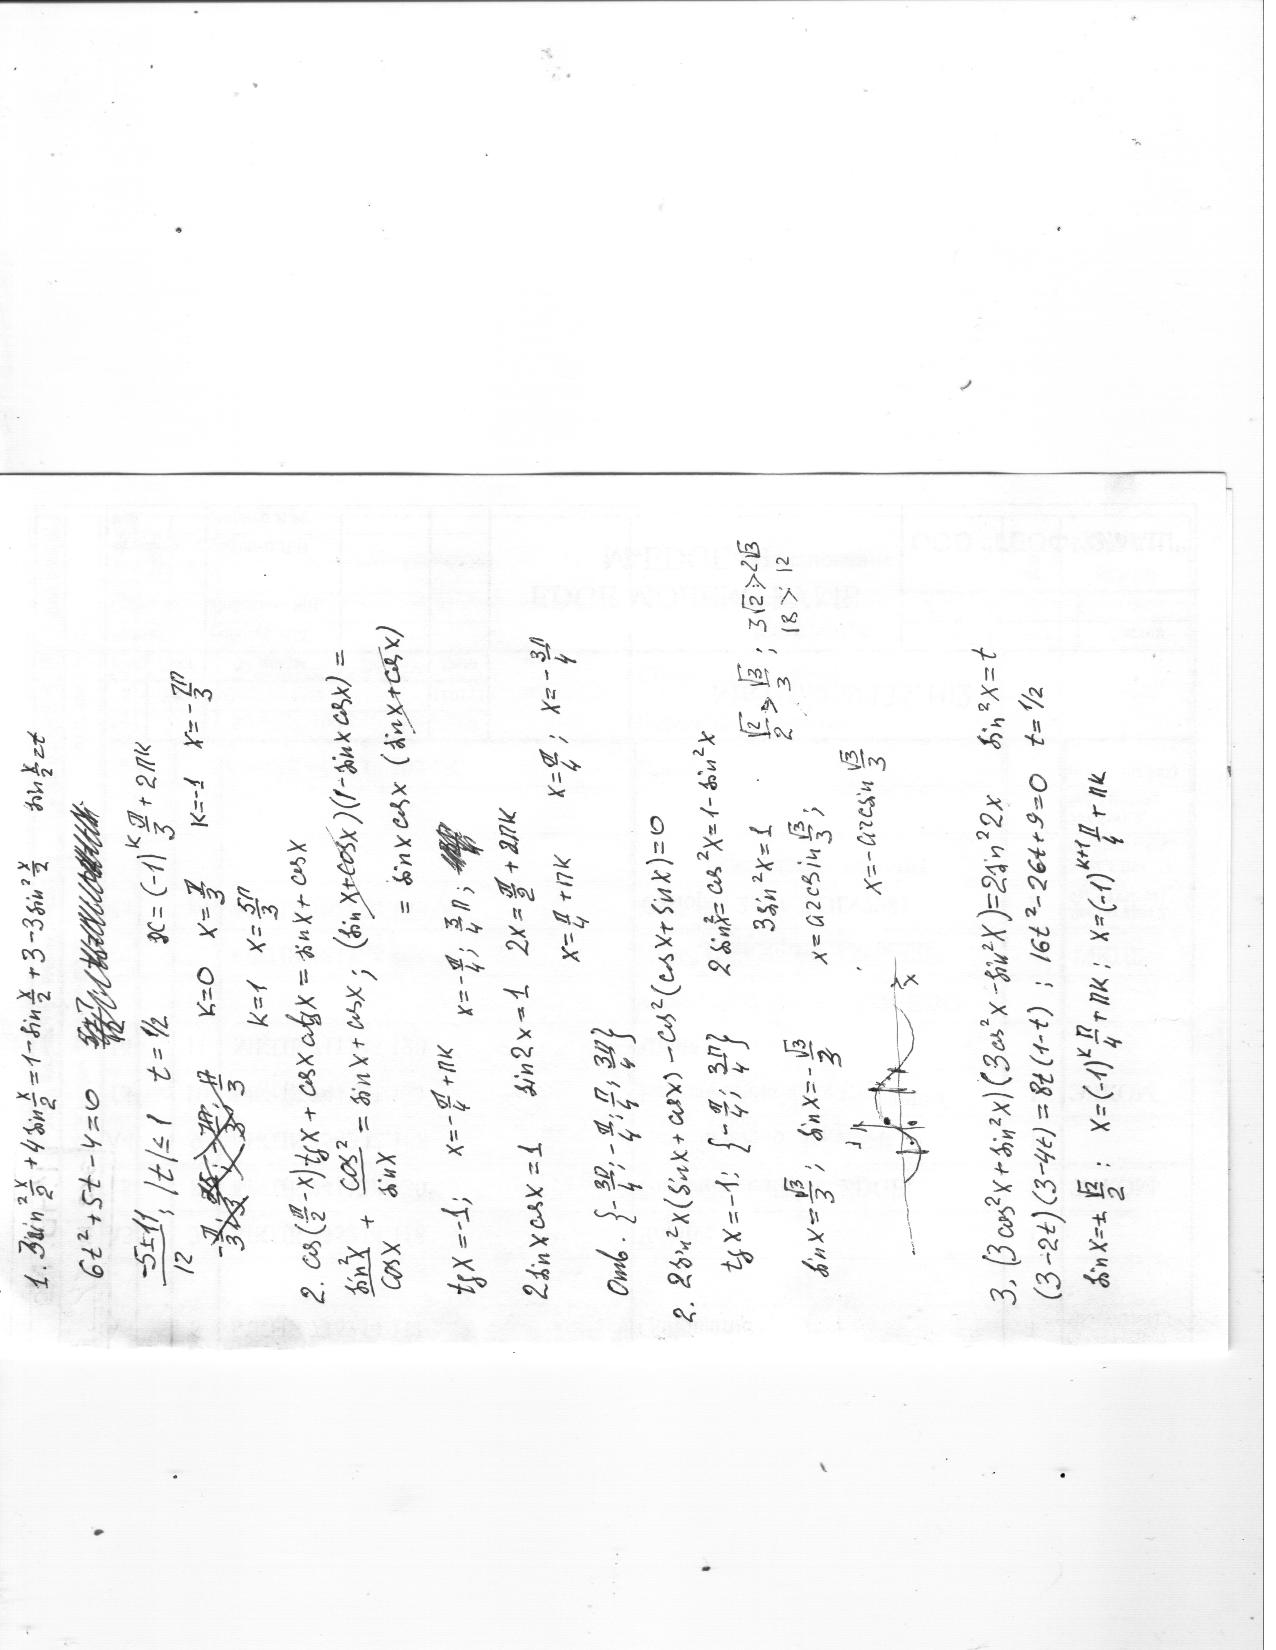 1. 3sin²x/2 + 4sin x/2 = 1 - sin x/2 + 3 - 3sin² x/2   sin x/2 = t
6t² + 5t - 4 = 0
(-5±11)/12; |t| ≤ 1   t = 1/2   x = (-1)^k π/3 + 2πk
k=0   x = π/3   k=-1   x = -7π/3
k=1   x = 5π/3
2. cos(π/2 - x)tgx + cosx ctgx = sinx + cosx
sin²x/cosx + cos²/sinx = sinx + cosx; (sinx+cosx)(1 - sinxcosx) =
= sinxcosx (sinx+cosx)
tgx = -1;   x = -π/4 + πk   x = -π/4; 3/4π;
2sinxcosx = 1   sin2x = 1   2x = π/2 + 2πk
x = π/4 + πk   x = π/4; x = -3π/4
Отв. {-3π/4; -π/4; π/4; 3π/4}
2. 2sin²x(sinx + cosx) - cos²(cosx + sinx) = 0
tgx = -1; {-π/4; 3π/4}   2sin²x = cos²x = 1 - sin²x
3sin²x = 1   √2/2 > √3/3; 3√2 > 2√3
18 > 12
sinx = √3/3; sinx = -√3/3   x = arcsin √3/3;
x = -arcsin √3/3
1
x
3. (3cos²x + sin²x)(3cos²x - sin²x) = 2sin²2x   sin²x = t
(3-2t)(3-4t) = 8t(1-t); 16t² - 26t + 9 = 0   t = 1/2
sinx = ±√2/2:   x = (-1)^k π/4 + πk; x = (-1)^(k+1) π/4 + πk